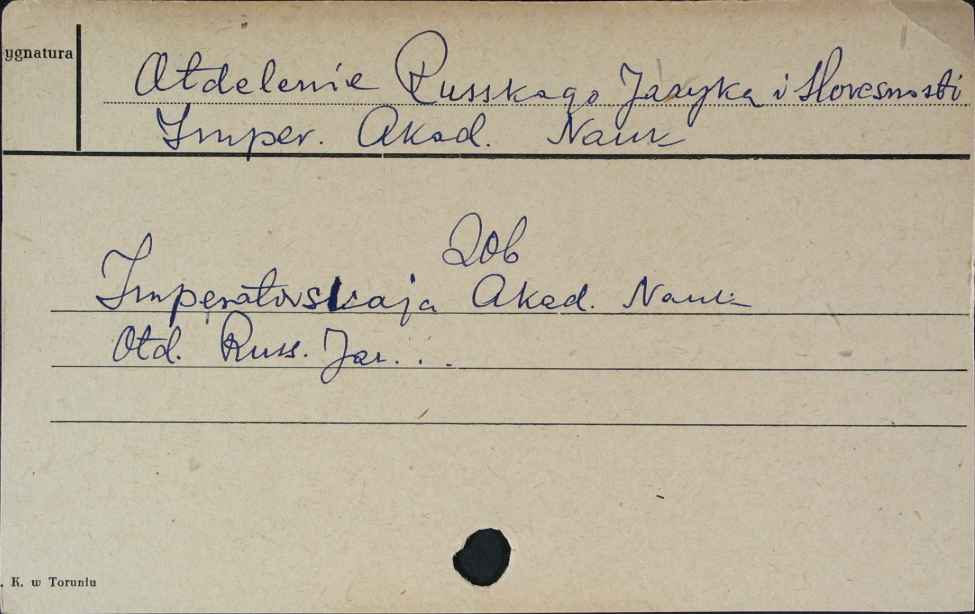 ygnatura
Otdelenie Russkago Jazyka i Slovesnosti
Imper. Akad. Nauk
Zob
Imperatorskaja Akad. Nauk
Otd. Russ. Jaz. . .
. K. w Toruniu